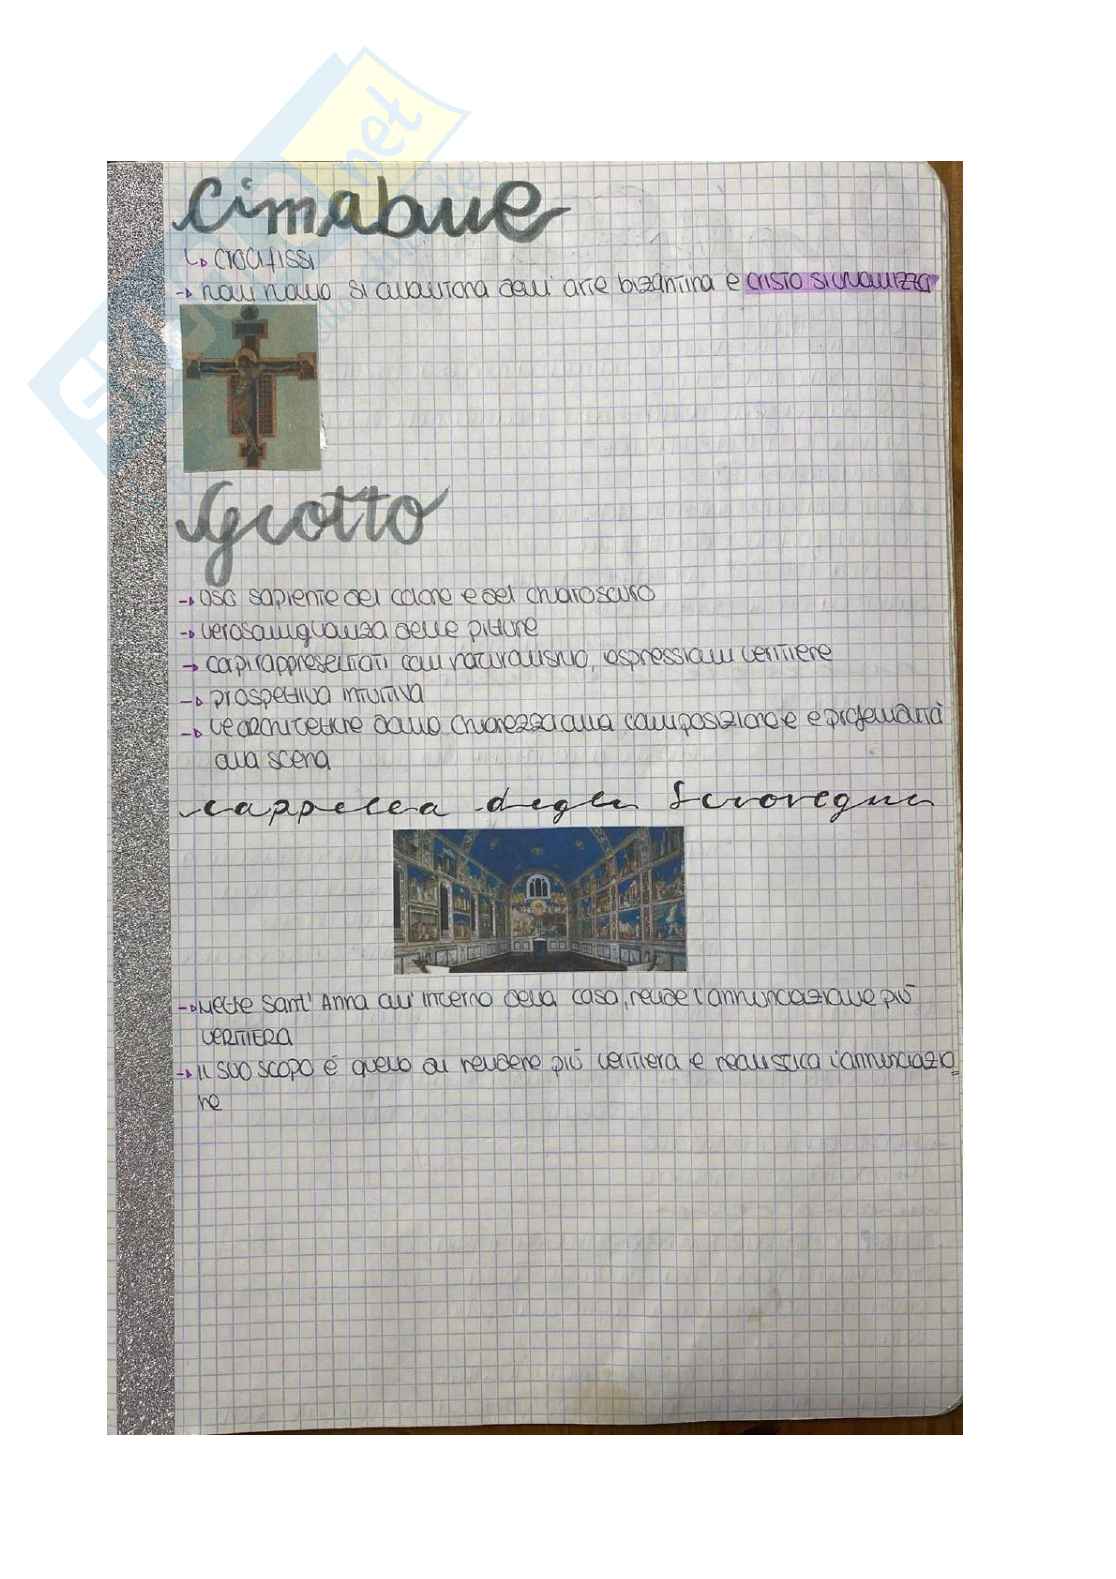 Cimabue
↳ crocifissi
→ pian piano si allontana dall'arte bizantina e Cristo si umanizza
Giotto
→ uso sapiente del colore e del chiaroscuro
→ verosomiglianza delle pitture
→ corpi rappresentati con naturalismo, espressioni veritiere
→ prospettiva intuitiva
→ le architetture danno chiarezza alla composizione e e profondità
alla scena
Cappella degli Scrovegni
→ Mette Sant'Anna all'interno della casa, rende l'annunciazione più
veritiera
→ il suo scopo è quello di rendere più veritiera e realistica l'annunciazio=
ne